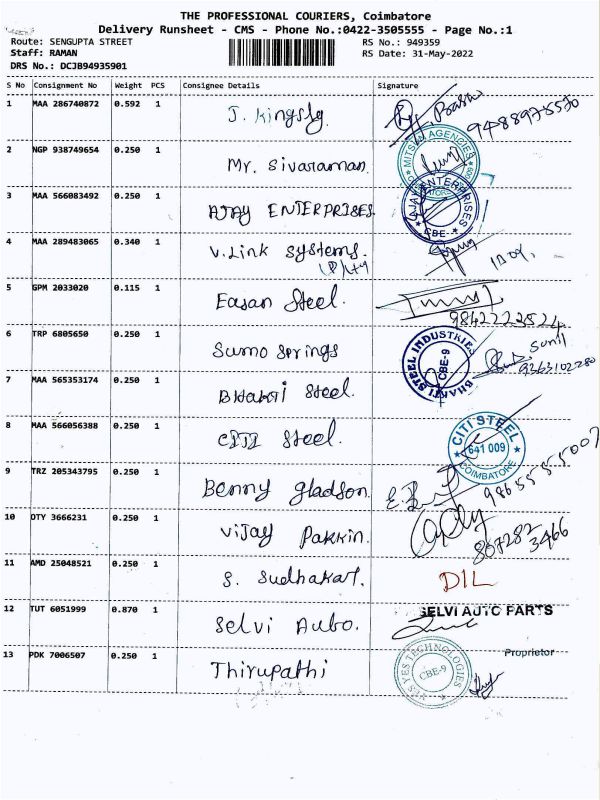 THE PROFESSIONAL COURIERS, Coimbatore
Delivery Runsheet - CMS - Phone No.:0422-3505555 - Page No.:1
Route: SENGUPTA STREET
RS No.: 949359
Staff: RAMAN
RS Date: 31-May-2022
DRS No.: DCJB94935901
S No Consignment No Weight PCS Consignee Details Signature
1 MAA 286740872 0.592 1 J. Kingsly
9488975570
2 NGP 938749654 0.250 1 Mr. Sivaraman
MITSU AGENCIES
3 MAA 566083492 0.250 1 AJAY ENTERPRISES
AJAY ENTERPRISES
CBE
4 MAA 289483065 0.340 1 V. Link Systems
5 GPM 2033020 0.115 1 Easan Steel.
9842222524
6 TRP 6805650 0.250 1 Sumo Springs
BHAKTI STEEL INDUSTRIES
CBE-9
Sunil
7 MAA 565353174 0.250 1 Bhakti Steel.
8 MAA 566056388 0.250 1 CITI Steel.
CITI STEEL
641 009
COIMBATORE
9 TRZ 205343795 0.250 1 Benny Gladson.
9865555007
10 OTY 3666231 0.250 1 Vijay Pakkin.
807282
3466
11 AMD 25048521 0.250 1 S. Sudhakar.
DIL
12 TUT 6051999 0.870 1 Selvi Auto.
SELVI AUTO PARTS
Proprietor
13 PDK 7006507 0.250 1 Thirupathi
YES YES TECHNOLOGIES
CBE-9